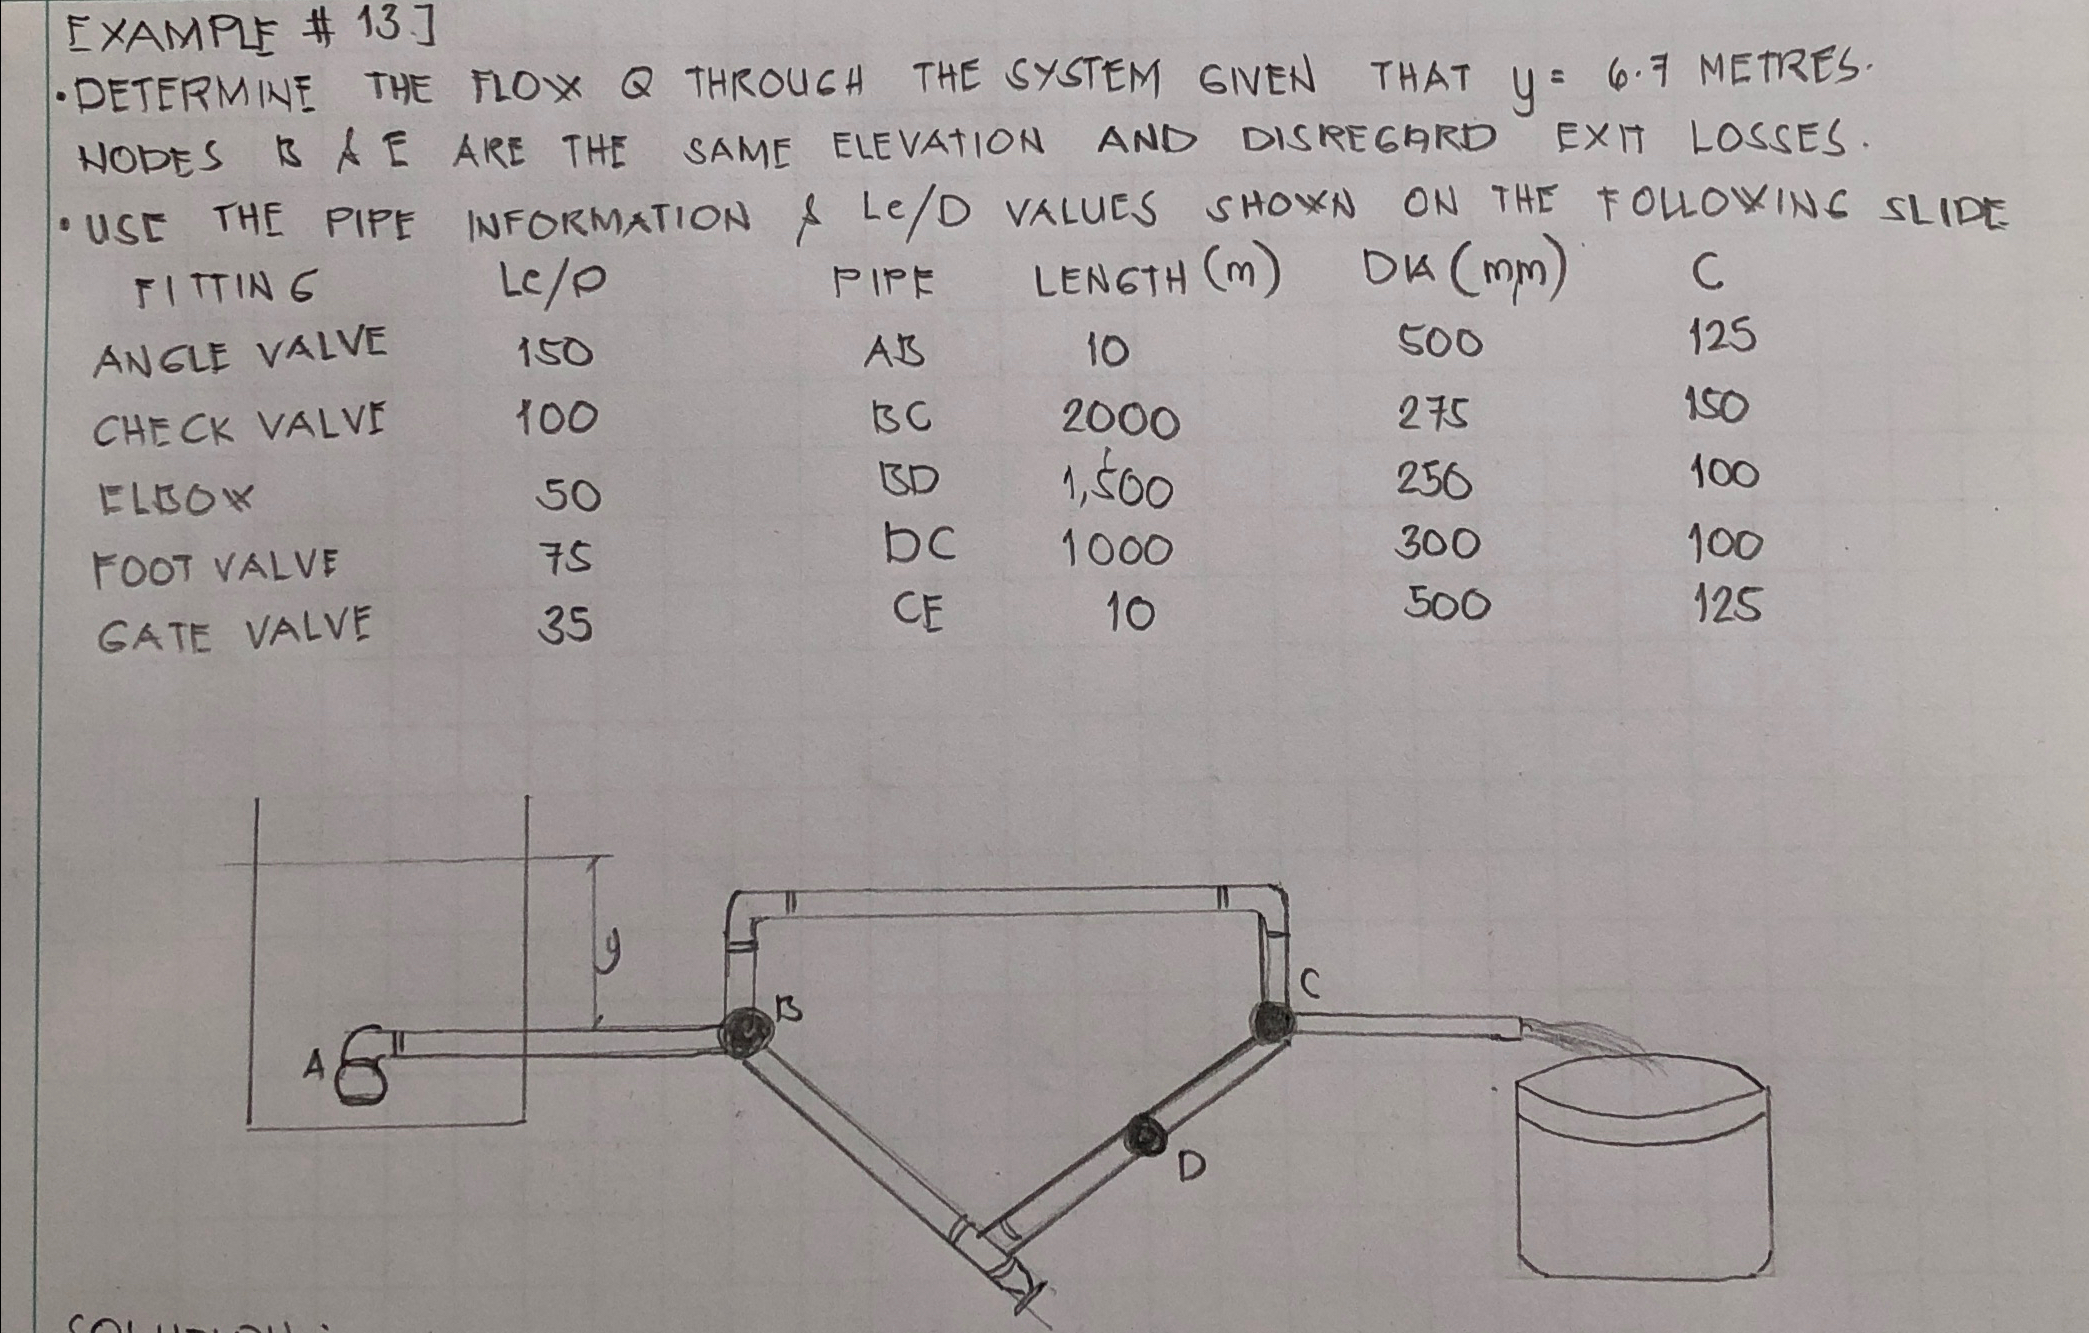 EXAMPLE # 13.]
• DETERMINE THE FLOW Q THROUGH THE SYSTEM GIVEN THAT y = 6.7 METRES.
NODES B & E ARE THE SAME ELEVATION AND DISREGARD EXIT LOSSES.
• USE THE PIPE INFORMATION & Le/D VALUES SHOWN ON THE FOLLOWING SLIDE
FITTING Le/D PIPE LENGTH (m) DIA (mm) C
ANGLE VALVE 150 AB 10 500 125
CHECK VALVE 100 BC 2000 275 150
ELBOW 50 BD 1,500 250 100
FOOT VALVE 75 DC 1000 300 100
GATE VALVE 35 CE 10 500 125
y
C
B
A
D
SOLUTION: